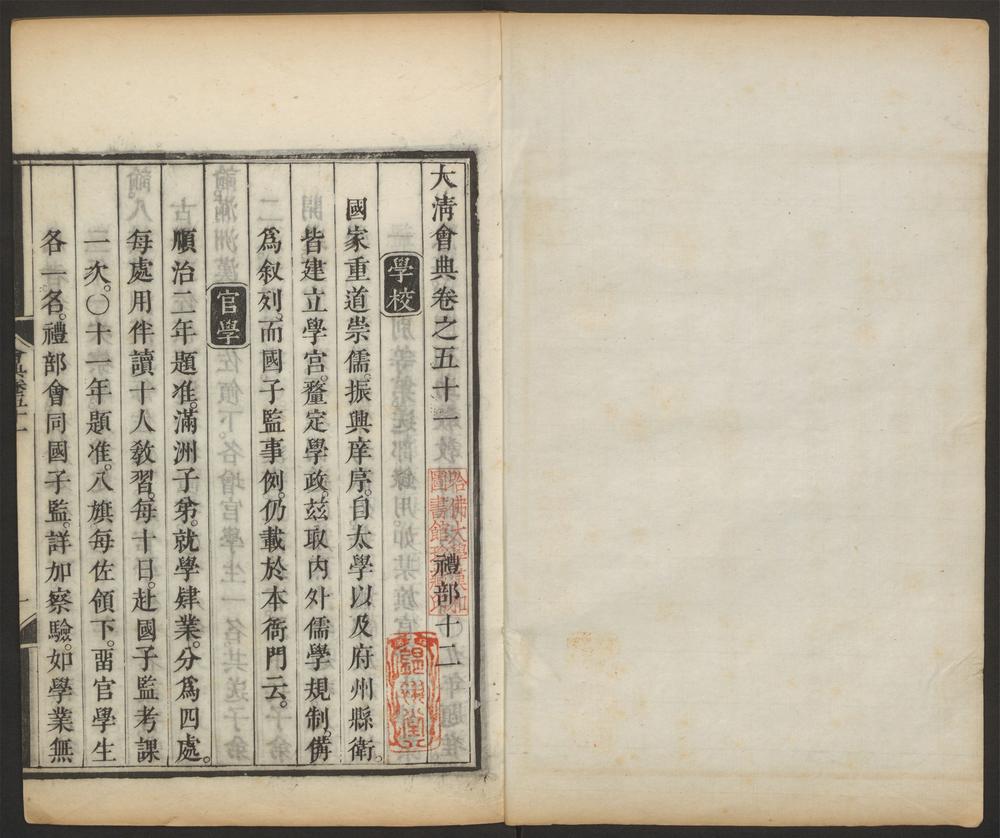 大清會典卷之五十一
禮部十二
學校
國家重道崇儒。振興庠序。自太學以及府州縣衛。
皆建立學宮。釐定學政。茲取內外儒學規制。備
爲叙列。而國子監事例。仍載於本衙門云。
官學
順治二年題准。滿洲子弟。就學肄業。分爲四處。
每處用伴讀十人教習。每十日。赴國子監考課
一次。〇十一年題准。八旗每佐領下。畱官學生
各一名。禮部會同國子監。詳加察驗。如學業無
哈佛大學漢和
圖書館